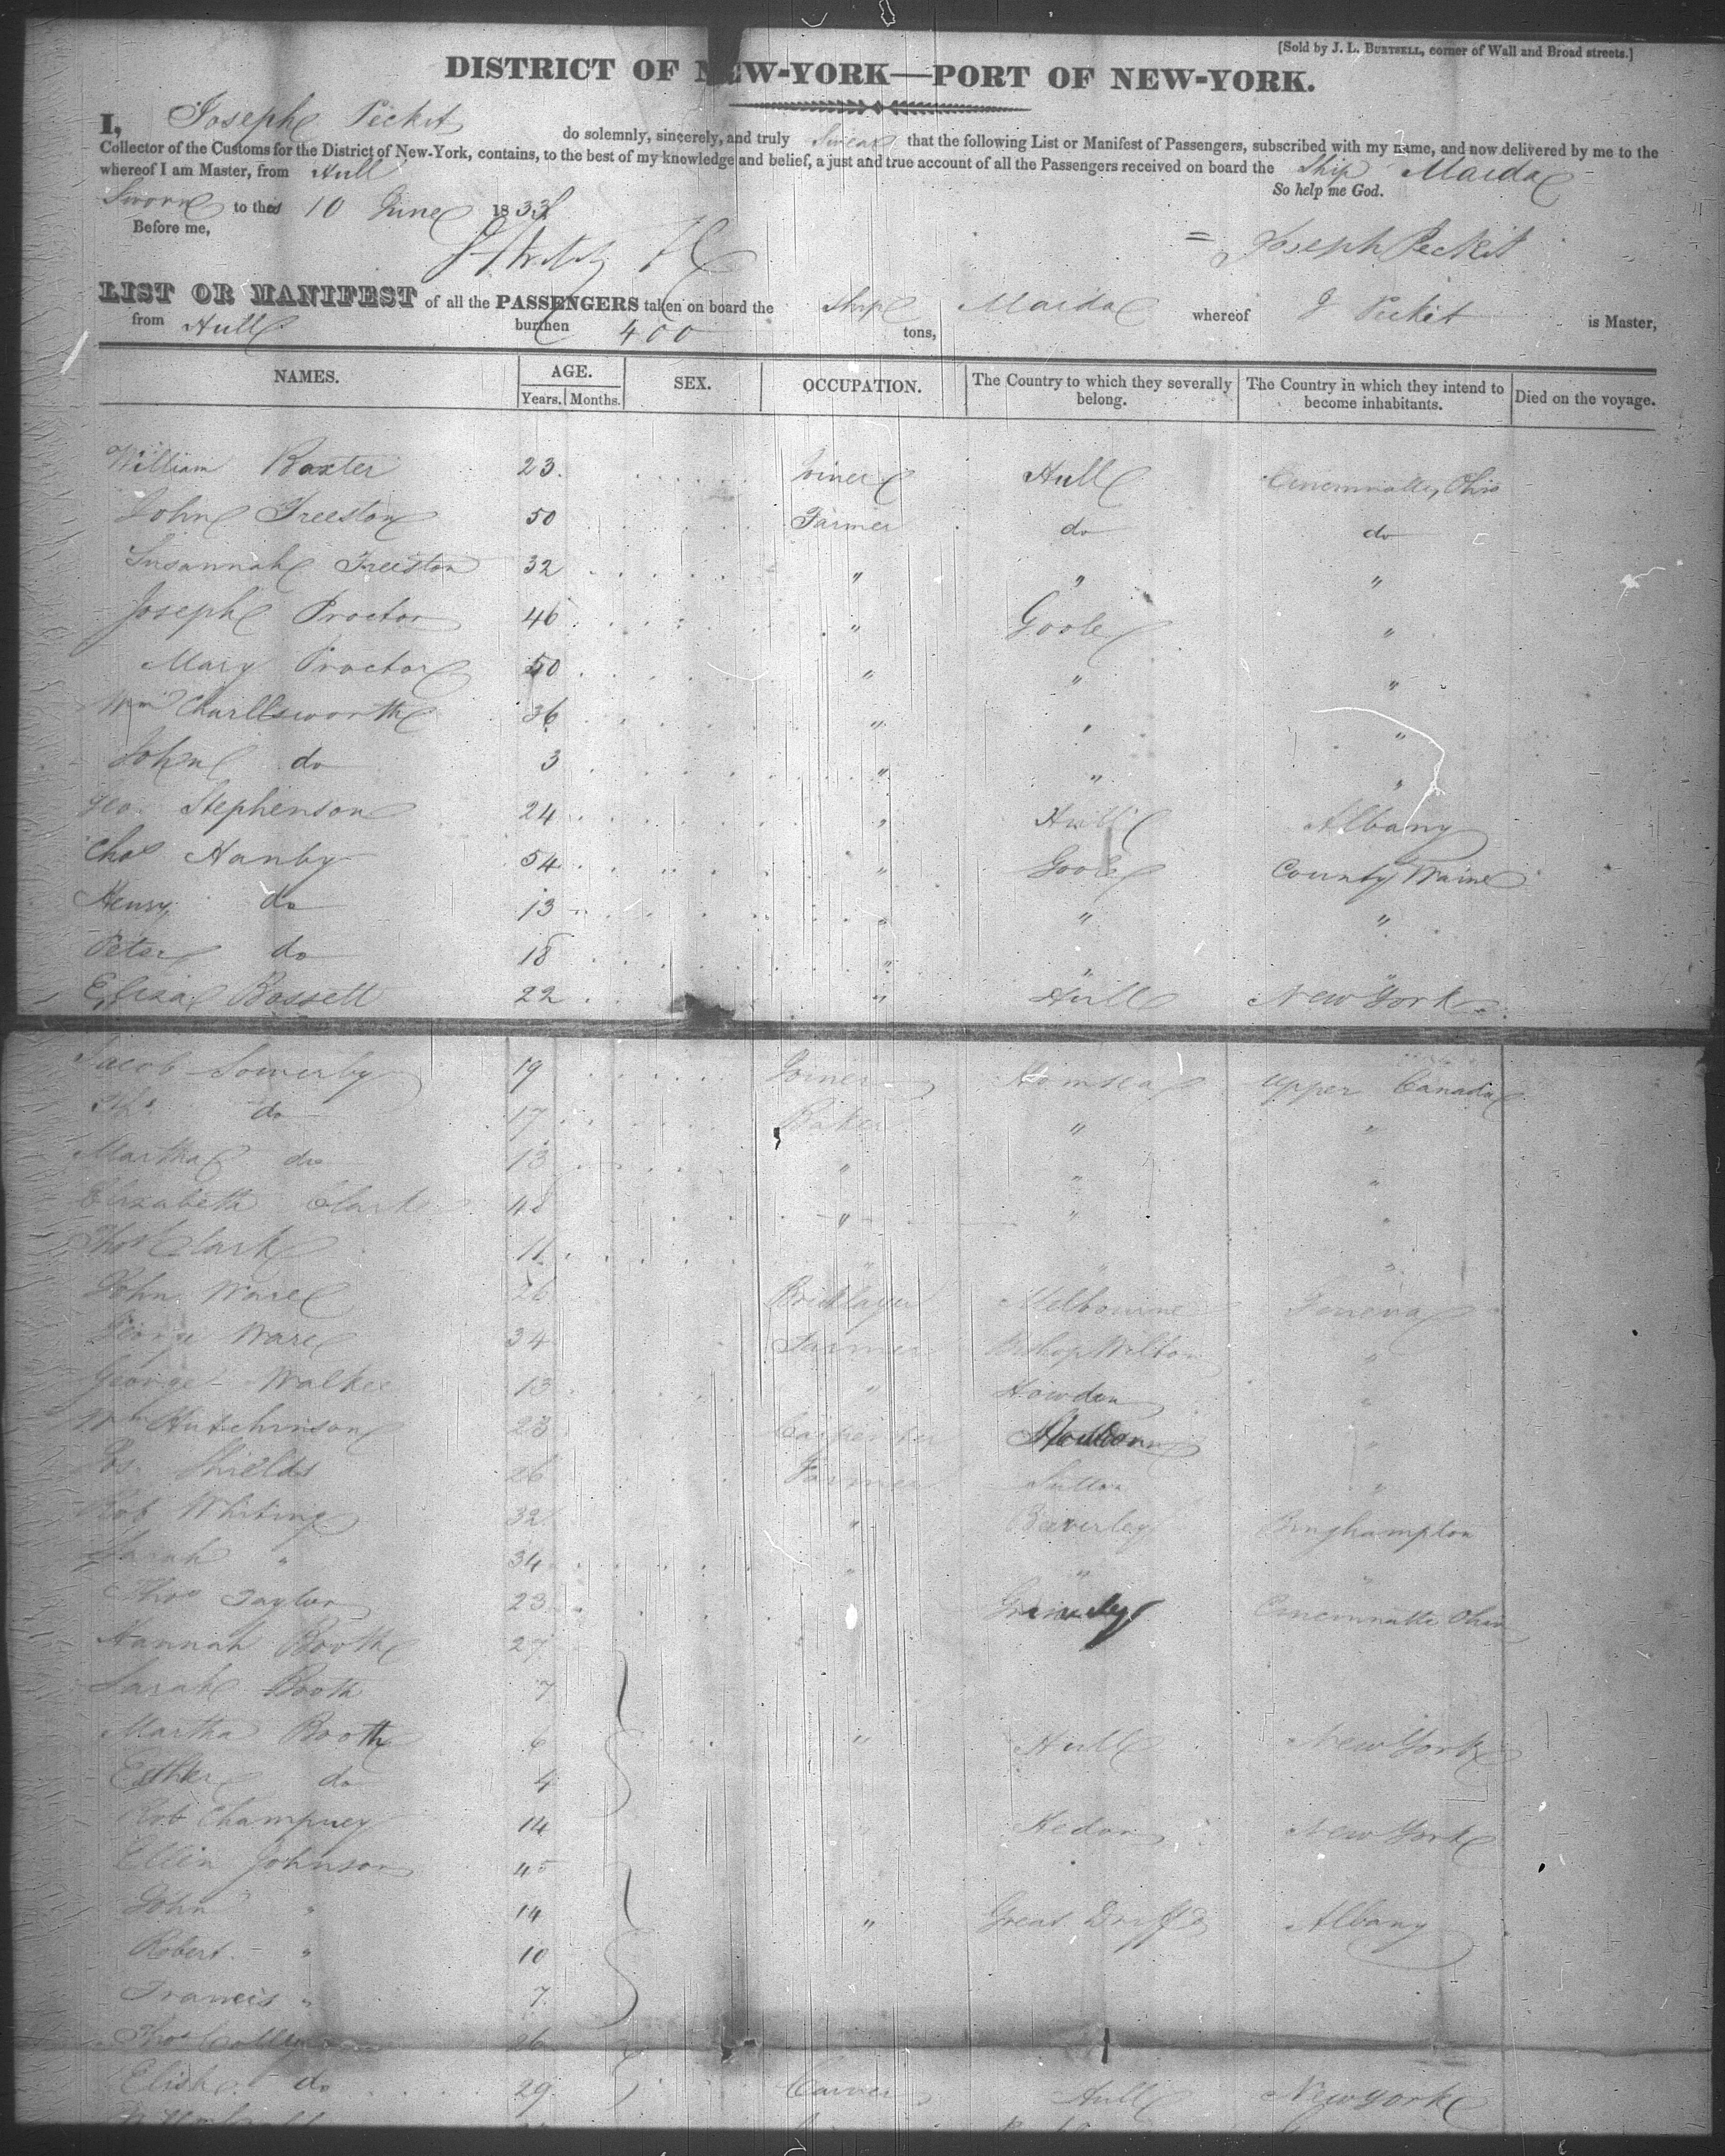 [Sold by J. L. BURTSELL, corner of Wall and Broad streets.]
DISTRICT OF NEW-YORK—PORT OF NEW-YORK.
I, Joseph Peckit do solemnly, sincerely, and truly Swear that the following List or Manifest of Passengers, subscribed with my name, and now delivered by me to the
Collector of the Customs for the District of New-York, contains, to the best of my knowledge and belief, a just and true account of all the Passengers received on board the Ship Maida
whereof I am Master, from Hull
So help me God.
Sworn to the 10 June 1833
Before me,
Joseph Peckit
LIST OR MANIFEST of all the PASSENGERS taken on board the Ship Maida whereof J Peckit is Master,
from Hull burthen 400 tons,
NAMES. AGE. SEX. OCCUPATION. The Country to which they severally belong. The Country in which they intend to become inhabitants. Died on the voyage.
Years. Months.
William Baxter 23 Joiner Hull Cincinnatti, Ohio
John Freeston 50 Farmer do do
Susannah Freeston 32 " " "
Joseph Proctor 46 " Goole "
Mary Proctor 50 " " "
Wm Charllsworth 36 " " "
John do 3 " " "
Geo. Stephenson 24 " Hull Albany
Chas Hanby 54 " Goole County Waine
Henry do 13 " " "
Peter do 18 " "
Eliza Bassett 22 " Hull New York
Jacob Sowerby 19 Joiner Hornsea Upper Canada
do 17 Baker " "
Martha do 13 " " "
Elizabeth Clark 48 " " "
Thos Clark 11 " " "
John Ware 26 Bricklayer Melbourne Geneva
George Ware 34 Farmer Bishop Wilton "
George Walker 13 " Howden "
Wm Hutchinson 23 Carpenter "
Jos. Shields 26 Farmer Sutton "
Rob Whiting 32 " Beverley Binghampton
Sarah " 34 " " "
Thos Taylor 23 Cincinnatti Ohio
Hannah Booth 27
Sarah Booth 7
Martha Booth 6 " Hull New York
Esther do 4
Rob Champney 14 " Hedon New York
Ellin Johnson 45
John " 14 " Great Albany
Robert " 10
Francis " 7
Thos 26
do 29 Carver Hull New York